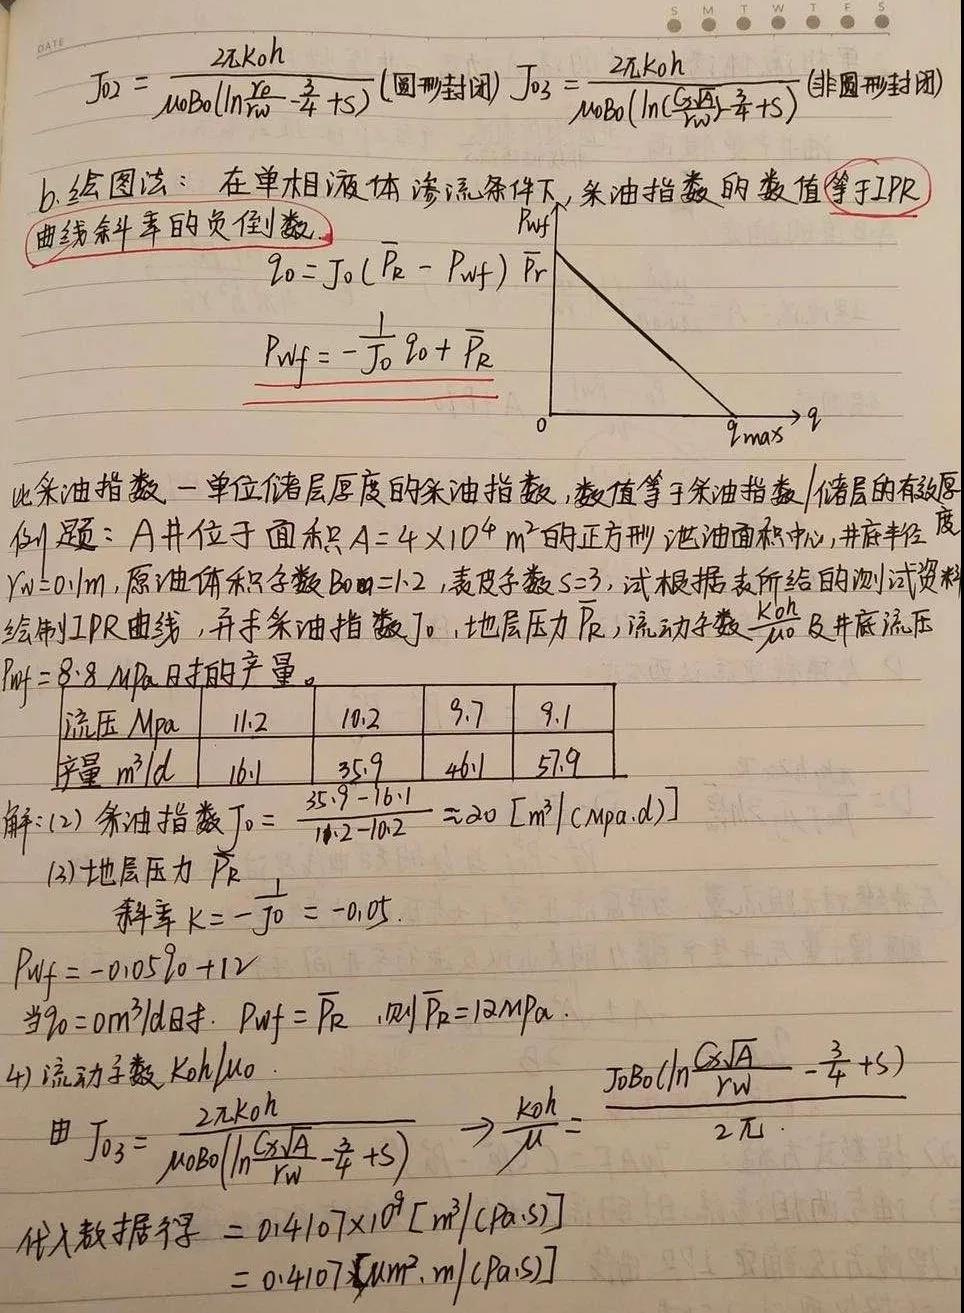 S M T W T F S
DATE
J02 = 2πKoh / μoBo(ln re/rw - 3/4 + S) (圆形封闭) J03 = 2πKoh / μoBo(ln(Cx√A/rw) - 3/4 + S) (非圆形封闭)
b.绘图法: 在单相液体渗流条件下,采油指数的数值等于IPR
曲线斜率的负倒数.
Pwf
qo = Jo(P̄R - Pwf) P̄r
Pwf = -1/Jo qo + P̄R
0 qmax q
比采油指数 - 单位储层厚度的采油指数,数值等于采油指数/储层的有效厚
度
例题: A井位于面积A=4×10⁴ m²的正方形泄油面积中心,井底半径
rw=0.1m,原油体积系数Bo=1.2,表皮系数S=3,试根据表所给的测试资料
绘制IPR曲线,并求采油指数Jo,地层压力P̄R,流动子数Koh/μo及井底流压
Pwf=8.8MPa时的产量。
流压 Mpa 11.2 10.2 9.7 9.1
产量 m³/d 16.1 35.9 46.1 57.9
解:(2) 采油指数Jo = 35.9-16.1 / 11.2-10.2 ≈20 [m³/(Mpa.d)]
(3)地层压力 P̄R
斜率K = -1/Jo = -0.05.
Pwf = -0.05qo+12
当qo=0m³/d时. Pwf=P̄R ,则P̄R=12MPa.
4)流动子数Koh/μo.
由 J03 = 2πkoh / μoBo(ln Cx√A/rw - 3/4 + S) → koh/μ = JoBo(ln Cx√A/rw - 3/4 + S) / 2π.
代入数据得 = 0.4107×10⁹[m³/(Pa.S)]
= 0.4107[μm².m/(Pa.S)]